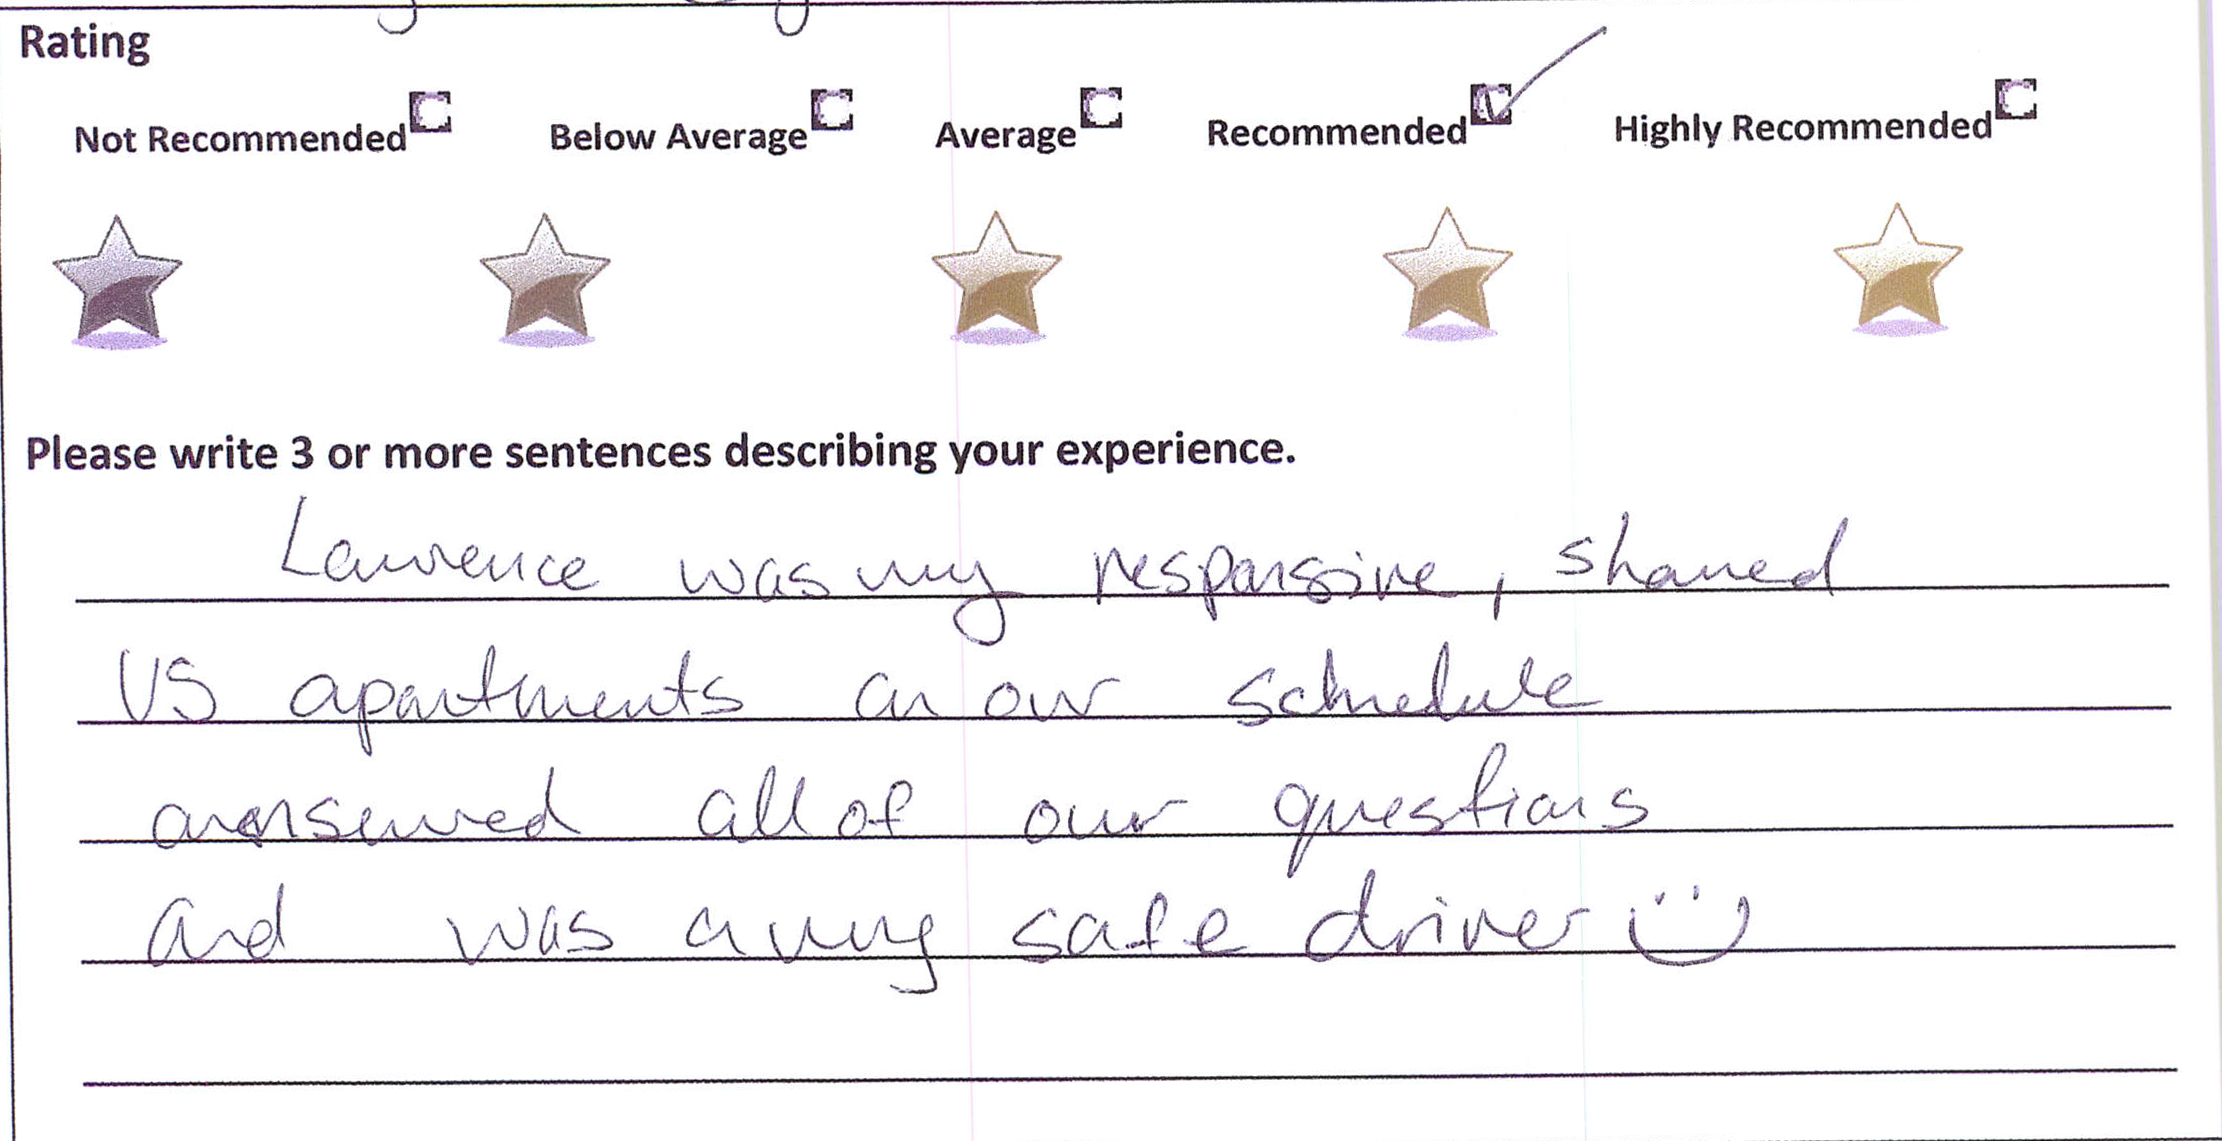 Rating
Not Recommended Below Average Average Recommended Highly Recommended
Please write 3 or more sentences describing your experience.
Lawrence was very responsive, showed
US apartments on our schedule
answered all of our questions
and was a very safe driver